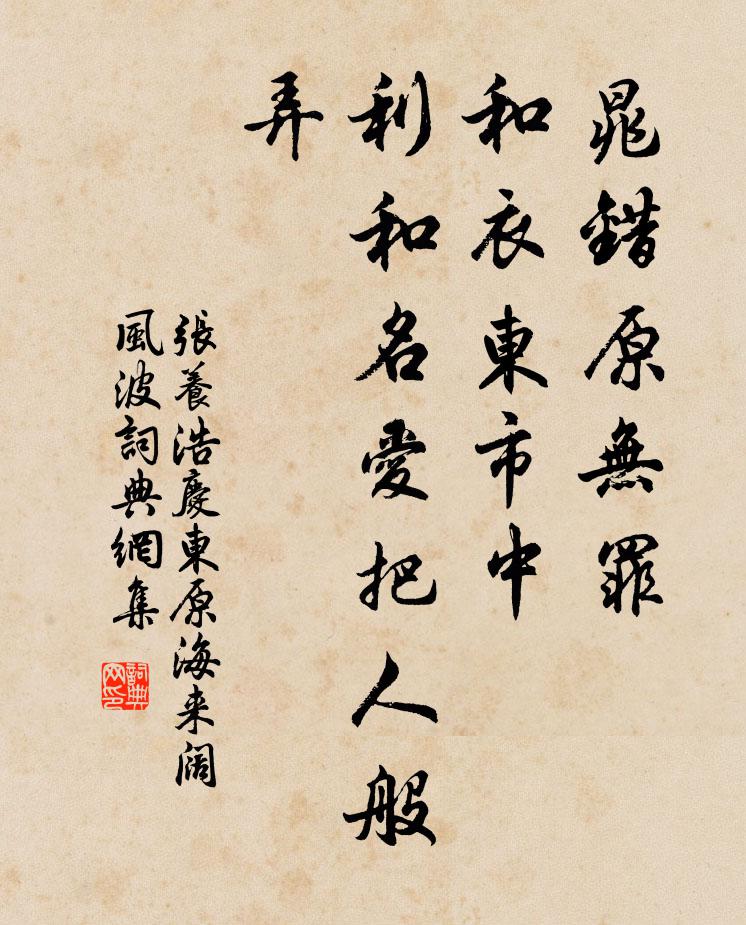 晁錯原無罪
和衣東市中
利和名愛把人般
弄
張養浩慶東原海来闊
風波詞典網集
詞典网印